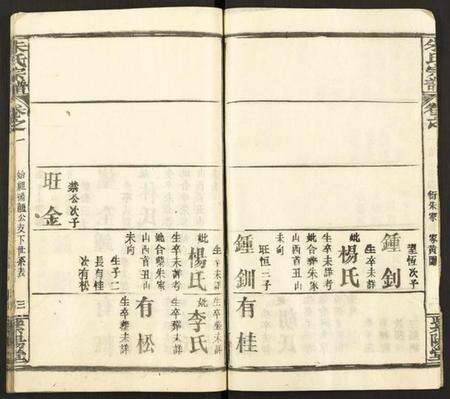 朱氏宗譜
卷之
鍾釗
望恆次子
生卒未詳
妣楊氏
生卒未詳考
妣合葬朱家
山酉首丑山
未向
鍾釧
旺恒二子
有桂
生卒未詳
朱氏宗譜
卷之一
始祖
公支下世系表
三
旺金
榮公次子
生卒未詳
妣楊氏
生卒未詳考
妣合葬朱家
山酉首丑山
未向
生子二
長有桂
次有松
妣李氏
生卒葬未詳
有松
生卒葬未詳